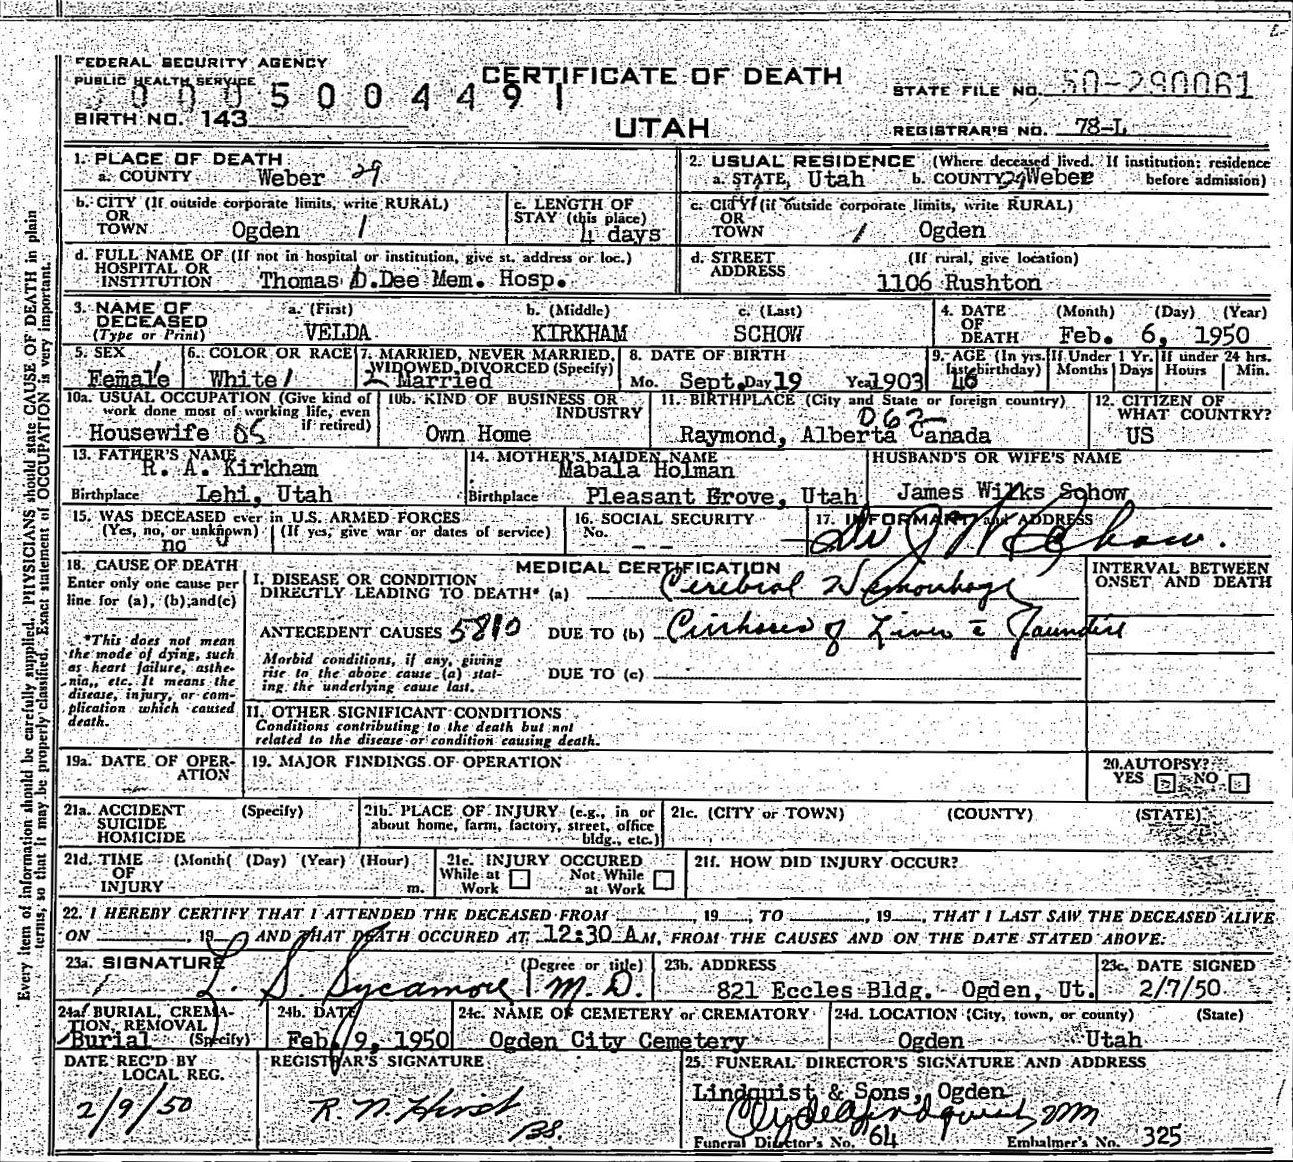 FEDERAL SECURITY AGENCY
PUBLIC HEALTH SERVICE
CERTIFICATE OF DEATH
UTAH
STATE FILE NO. 50-290061
0005004491
BIRTH NO. 143
REGISTRAR'S NO. 78-L
1. PLACE OF DEATH
a. COUNTY Weber 29
2. USUAL RESIDENCE (Where deceased lived. If institution: residence before admission)
a. STATE, Utah b. COUNTY 29 Weber
b. CITY (If outside corporate limits, write RURAL)
OR
TOWN Ogden 1
c. LENGTH OF
STAY (this place)
4 days
c. CITY (if outside corporate limits, write RURAL)
OR
TOWN 1 Ogden
d. FULL NAME OF (If not in hospital or institution, give st. address or loc.)
HOSPITAL OR
INSTITUTION Thomas D.Dee Mem. Hosp.
d. STREET (If rural, give location)
ADDRESS
1106 Rushton
3. NAME OF a. (First) b. (Middle) c. (Last)
DECEASED
(Type or Print) VELDA KIRKHAM SCHOW
4. DATE (Month) (Day) (Year)
OF
DEATH Feb. 6, 1950
5. SEX
Female
6. COLOR OR RACE
White
7. MARRIED, NEVER MARRIED,
WIDOWED, DIVORCED (Specify)
Married
8. DATE OF BIRTH
Mo. Sept. Day 19 Year 1903
9. AGE (In yrs.
last birthday)
46
If Under 1 Yr.
Months Days
If under 24 hrs.
Hours Min.
10a. USUAL OCCUPATION (Give kind of
work done most of working life, even
if retired)
Housewife
10b. KIND OF BUSINESS OR
INDUSTRY
Own Home
11. BIRTHPLACE (City and State or foreign country)
062
Raymond, Alberta Canada
12. CITIZEN OF
WHAT COUNTRY?
US
13. FATHER'S NAME
R. A. Kirkham
Birthplace Lehi, Utah
14. MOTHER'S MAIDEN NAME
Mabala Holman
Birthplace Pleasant Grove, Utah
HUSBAND'S OR WIFE'S NAME
James Wilks Schow
15. WAS DECEASED ever in U.S. ARMED FORCES
(Yes, no, or unknown) (If yes, give war or dates of service)
no
16. SOCIAL SECURITY
No.
- -
17. INFORMANT and ADDRESS
Dr J W Schow.
MEDICAL CERTIFICATION
18. CAUSE OF DEATH
Enter only one cause per
line for (a), (b), and (c)
*This does not mean
the mode of dying, such
as heart failure, asthe-
nia, etc. It means the
disease, injury, or com-
plication which caused
death.
I. DISEASE OR CONDITION
DIRECTLY LEADING TO DEATH* (a) Cerebral Hemorrhage
INTERVAL BETWEEN
ONSET AND DEATH
ANTECEDENT CAUSES 5810 DUE TO (b) Cirrhosis of Liver c̄ Jaundice
Morbid conditions, if any, giving
rise to the above cause (a) stat-
ing the underlying cause last.
DUE TO (c)
II. OTHER SIGNIFICANT CONDITIONS
Conditions contributing to the death but not
related to the disease or condition causing death.
19a. DATE OF OPER-
ATION
19. MAJOR FINDINGS OF OPERATION
20. AUTOPSY?
YES NO
21a. ACCIDENT (Specify)
SUICIDE
HOMICIDE
21b. PLACE OF INJURY (e.g., in or
about home, farm, factory, street, office
bldg., etc.)
21c. (CITY or TOWN) (COUNTY) (STATE)
21d. TIME (Month( (Day) (Year) (Hour)
OF
INJURY m.
21e. INJURY OCCURED
While at Not While
Work at Work
21f. HOW DID INJURY OCCUR?
22. I HEREBY CERTIFY THAT I ATTENDED THE DECEASED FROM , 19 , TO , 19 , THAT I LAST SAW THE DECEASED ALIVE
ON , 19 AND THAT DEATH OCCURED AT 12:30 AM, FROM THE CAUSES AND ON THE DATE STATED ABOVE:
23a. SIGNATURE (Degree or title)
L. S. Sycamore M. D.
23b. ADDRESS
821 Eccles Bldg. Ogden, Ut.
23c. DATE SIGNED
2/7/50
24a. BURIAL, CREMA-
TION, REMOVAL
Burial (Specify)
24b. DATE
Feb. 9, 1950
24c. NAME OF CEMETERY or CREMATORY
Ogden City Cemetery
24d. LOCATION (City, town, or county) (State)
Ogden Utah
DATE REC'D BY
LOCAL REG.
2/9/50
REGISTRAR'S SIGNATURE
R. N. Hirst
BS.
25. FUNERAL DIRECTOR'S SIGNATURE AND ADDRESS
Lindquist & Sons, Ogden
Clyde Lindquist
Funeral Director's No. 64 Embalmer's No. 325
Every item of information should be carefully supplied. PHYSICIANS should state CAUSE OF DEATH in plain
terms; so that it may be properly classified. Exact statement of OCCUPATION is very important.